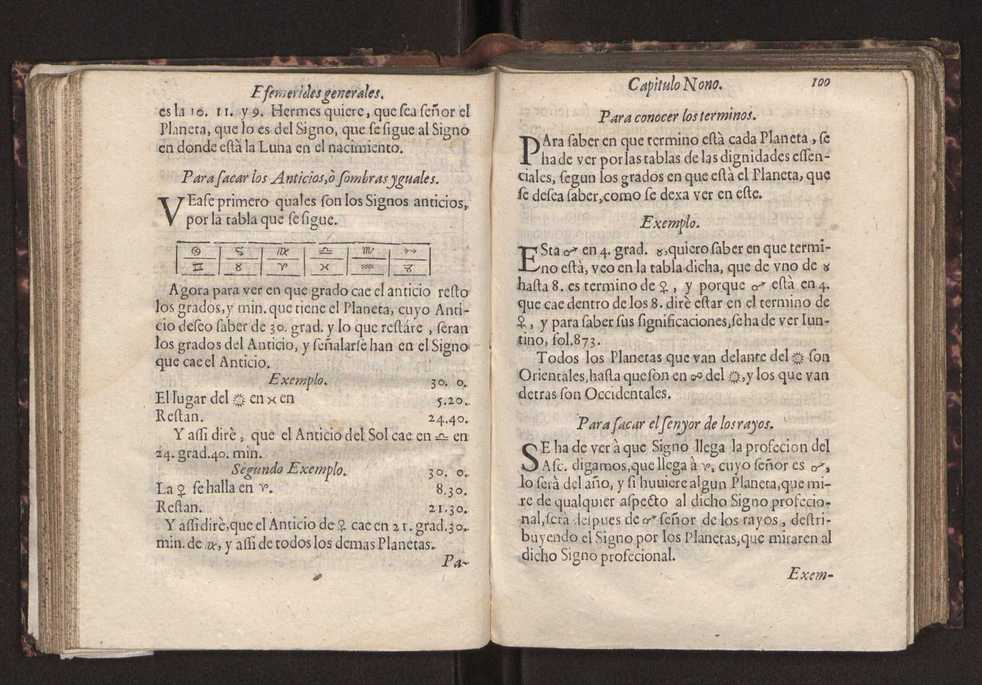 Efemerides generales.
es la 10. 11. y 9. Hermes quiere, que sea señor el
Planeta, que lo es del Signo, que se sigue al Signo
en donde està la Luna en el nacimiento.
Para sacar los Anticios, ò sombras yguales.
VEase primero quales son los Signos anticios,
por la tabla que se sigue.
♋ ♌ ♍ ♎ ♏ ♐
♊ ♉ ♈ ♓ ♒ ♑
Agora para ver en que grado cae el anticio resto
los grados, y min. que tiene el Planeta, cuyo Anti-
cio deseo saber de 30. grad. y lo que restáre, seran
los grados del Anticio, y señalarse han en el Signo
que cae el Anticio.
Exemplo. 30. 0.
El lugar del ☼ en ♓ en 5.20.
Restan. 24.40.
Y assi dirè, que el Anticio del Sol cae en ♎ en
24. grad. 40. min.
Segundo Exemplo. 30. 0.
La ♀ se halla en ♈. 8.30.
Restan. 21.30.
Y assi dirè, que el Anticio de ♀ cae en 21. grad. 30.
min. de ♍, y assi de todos los demas Planetas.
Pa-
Capitulo Nono. 100
Para conocer los terminos.
PAra saber en que termino està cada Planeta, se
ha de ver por las tablas de las dignidades essen-
ciales, segun los grados en que està el Planeta, que
se desea saber, como se dexa ver en este.
Exemplo.
ESta ♂ en 4. grad. ♉, quiero saber en que termi-
no està, veo en la tabla dicha, que de vno de ♉
hasta 8. es termino de ♀, y porque ♂ està en 4.
que cae dentro de los 8. dirè estar en el termino de
♀, y para saber sus significaciones, se ha de ver Iun-
tino, fol. 873.
Todos los Planetas que van delante del ☼ son
Orientales, hasta que son en ☍ del ☼, y los que van
detras son Occidentales.
Para sacar el senyor de los rayos.
SE ha de ver à que Signo llega la profecion del
Asc. digamos, que llega à ♈, cuyo señor es ♂,
lo serà del año, y si huuiere algun Planeta, que mi-
re de qualquier aspecto al dicho Signo profecio-
nal, sera despues de ♂ señor de los rayos, destri-
buyendo el Signo por los Planetas, que miraren al
dicho Signo profecional.
Exem-